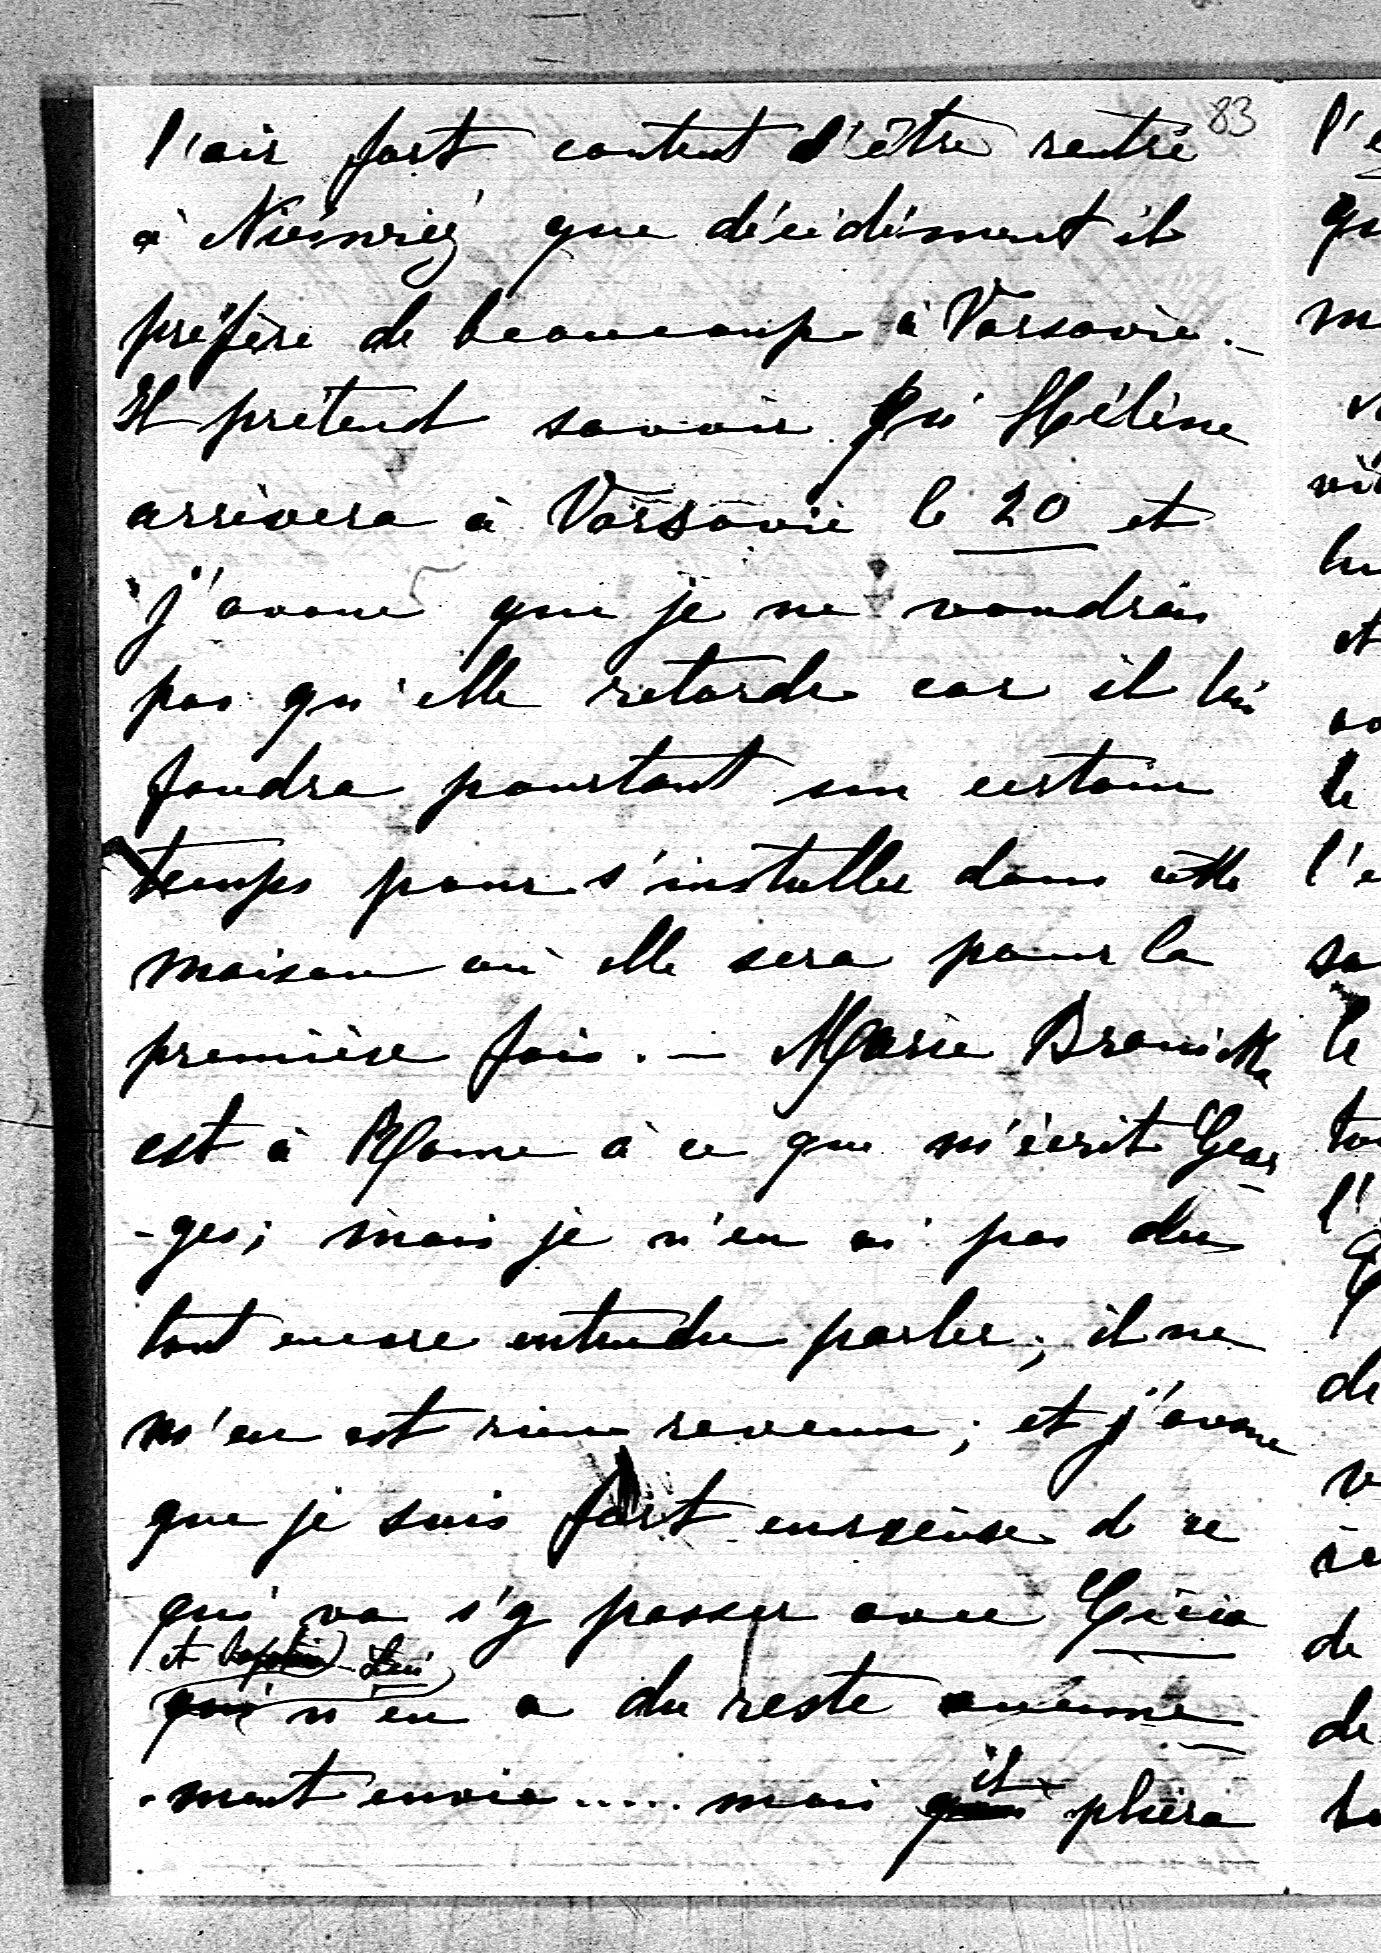 83
l'air fort content d'être rentré
à Nieświéż que décidément il
préfère de beaucoup à Varsovie. –
Il prétend savoir qu'Hélène
arrivera à Varsovie le 20 et
j'avoue que je ne voudrais
pas qu'elle retarde car il lui
faudra pourtant un certain
temps pour s'installer dans cette
maison où elle sera pour la
première fois. – Marie Branicka
est à Rome à ce que m'écrit Geor
-ges; mais je n'en ai pas du
tout encore entendu parler; il ne
m'en est rien revenu; et j'avoue
que je suis fort curieuse de ce
qui va s'y passer avec
et lui
qui n'en a du reste aucune
-ment envie..... mais il pliera